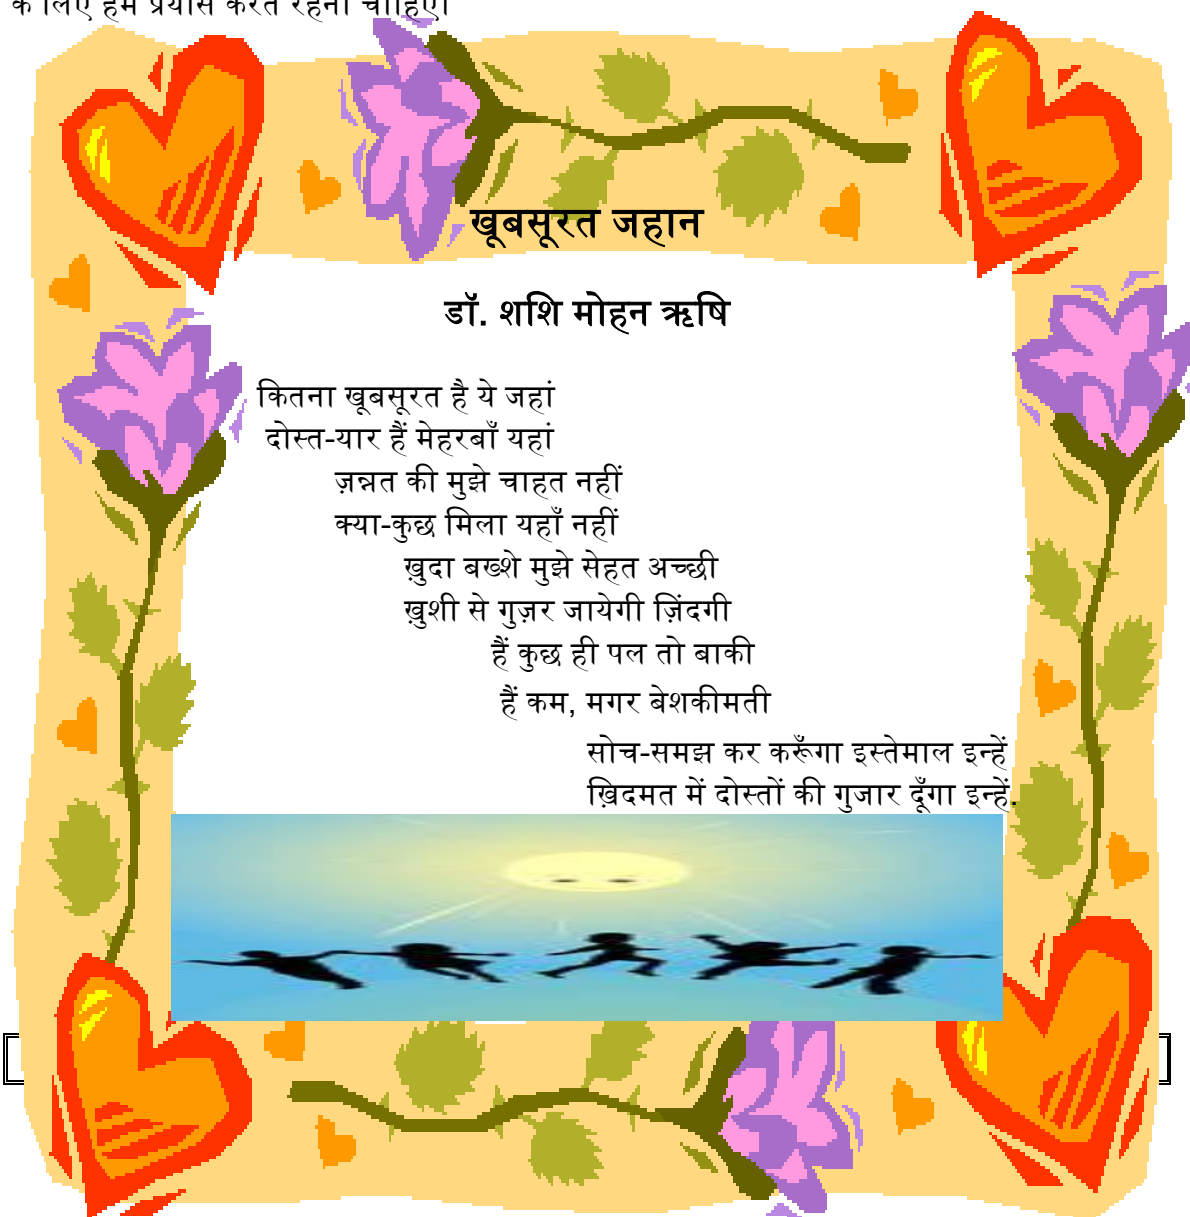 के लिए हमें प्रयास करते रहना चाहिए।
खूबसूरत जहान
डॉ. शशि मोहन ऋषि
कितना खूबसूरत है ये जहां
दोस्त-यार हैं मेहरबाँ यहां
ज़न्नत की मुझे चाहत नहीं
क्या-कुछ मिला यहाँ नहीं
ख़ुदा बख्शे मुझे सेहत अच्छी
ख़ुशी से गुज़र जायेगी ज़िंदगी
हैं कुछ ही पल तो बाकी
हैं कम, मगर बेशकीमती
सोच-समझ कर करूँगा इस्तेमाल इन्हें
ख़िदमत में दोस्तों की गुजार दूँगा इन्हें.